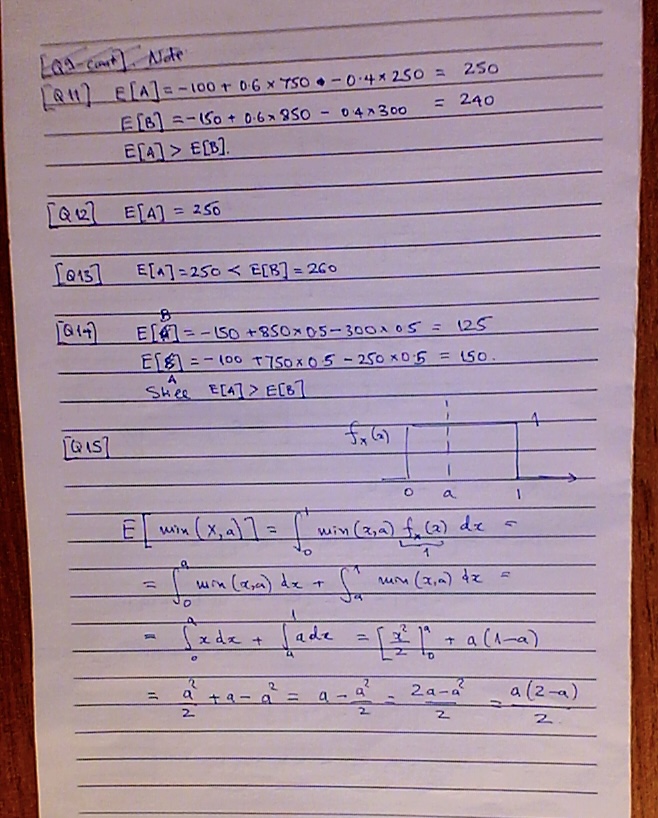 [Q9-cont] Note
[Q11] E[A] = -100 + 0.6 x 750 - 0.4 x 250 = 250
E[B] = -150 + 0.6 x 850 - 0.4 x 300 = 240
E[A] > E[B].
[Q12] E[A] = 250
[Q13] E[A] = 250 < E[B] = 260
[Q14] E[B] = -150 + 850 x 0.5 - 300 x 0.5 = 125
E[A] = -100 + 750 x 0.5 - 250 x 0.5 = 150.
E[A] > E[B]
[Q15] fₓ(x) 1
0 a 1
E[min(X,a)] = ∫₀¹ min(x,a) fₓ(x) dx =
1
= ∫₀ᵃ min(x,a) dx + ∫ₐ¹ min(x,a) dx =
= ∫₀ᵃ x dx + ∫ₐ¹ a dx = [x²/2]₀ᵃ + a(1-a)
= a²/2 + a - a² = a - a²/2 = (2a-a²)/2 = a(2-a)/2.